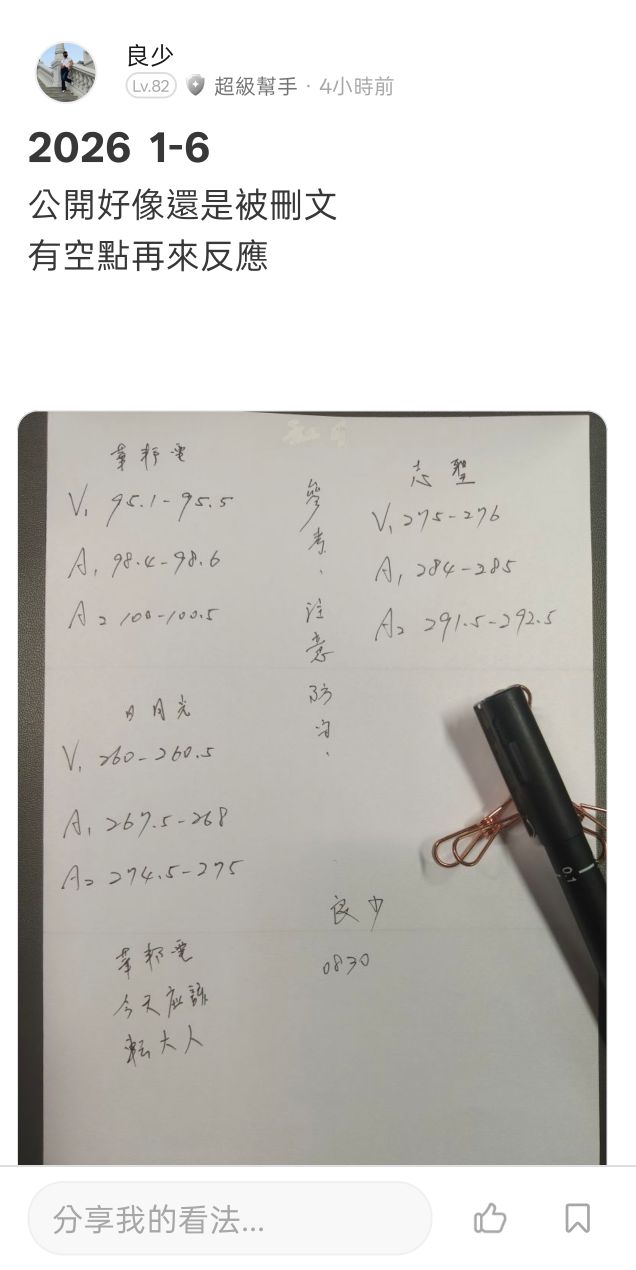 良少
Lv.82 超級幫手 · 4小時前
2026 1-6
公開好像還是被刪文
有空點再來反應
華邦電
V1 95.1-95.5
A1 98.4-98.6
A2 100-100.5
志聖
V1 275-276
A1 284-285
A2 291.5-292.5
參考、注意防守.
日月光
V1 260-260.5
A1 267.5-268
A2 274.5-275
華邦電
今天應該
転大人
良少
0830
0.1
分享我的看法...